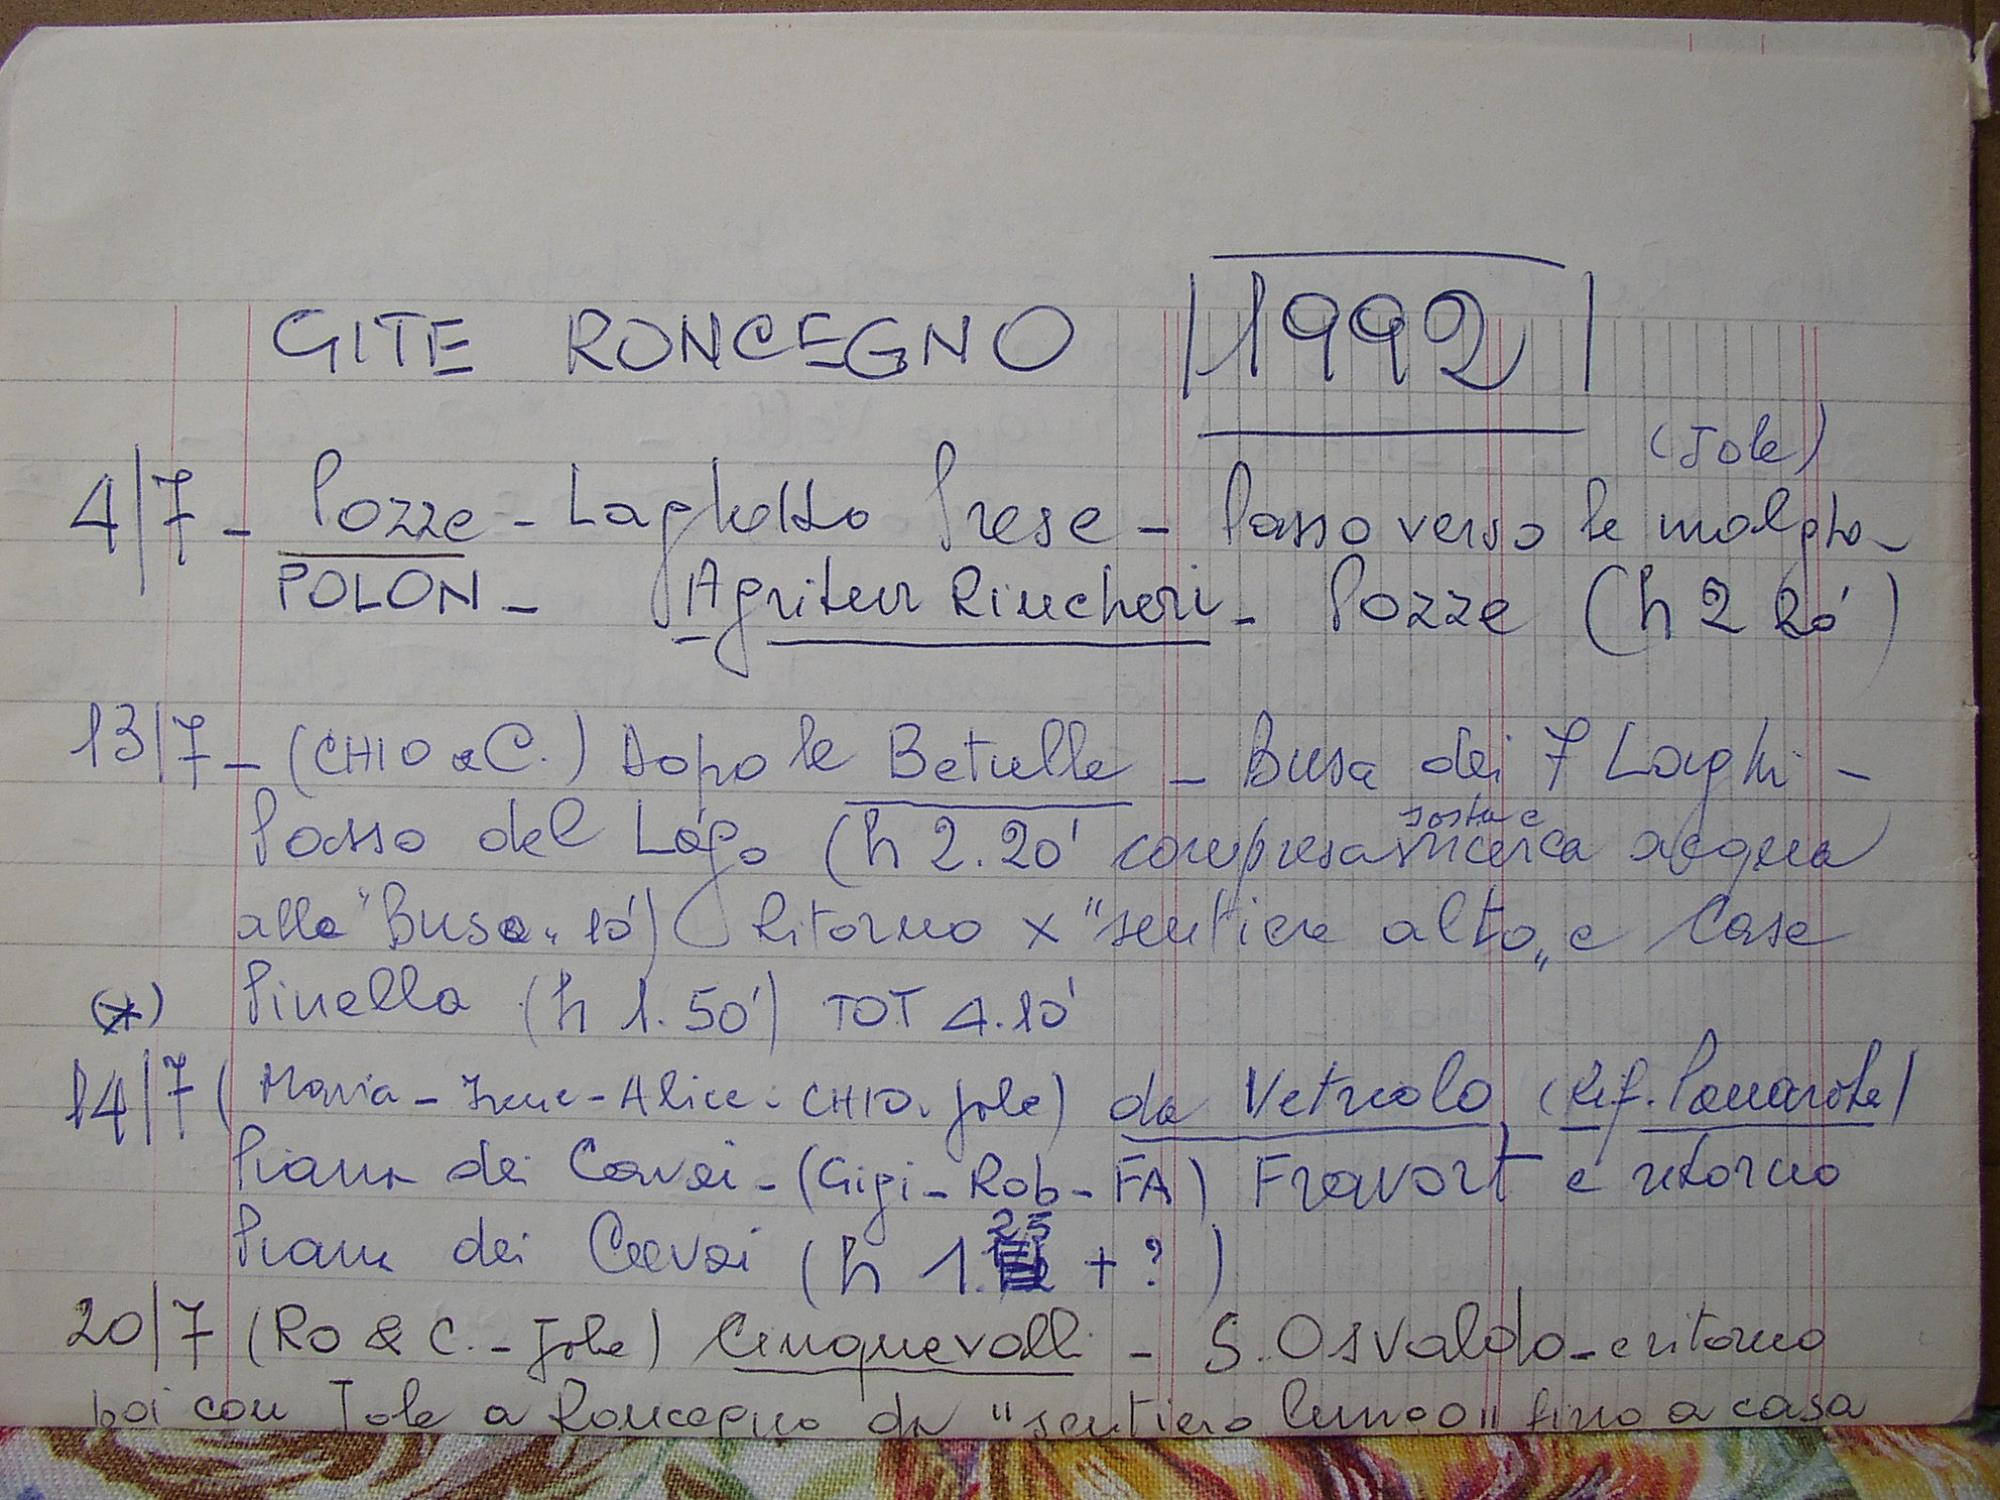 GITE RONCEGNO 1992
(Jole)
4/7 - Pozze - Laghetto Prese - Passo verso le malghe -
POLON - Agritur Rincheri - Pozze (h 2 20')
13/7 - (CHIO e C.) Dopo le Betulle - Busa dei 7 Laghi -
Passo del Lago (h 2.20' compresa sosta e ricerca acqua
alla "Busa" 10') Ritorno x "sentiero alto" e Case
Pinella (h 1.50') TOT 4.10'
(*)
14/7 (Maria - Irene - Alice - CHIO - Jole) da Vetriolo (Rif. Panarotta)
Piana dei Cavai - (Gigi - Rob - FA) Fravort e ritorno
Piana dei Cavai (h 1.25 + ?)
20/7 (Ro & C. - Jole) Cinquevalli - S. Osvaldo - e ritorno
poi con Jole a Roncegno da "sentiero lungo" fino a casa